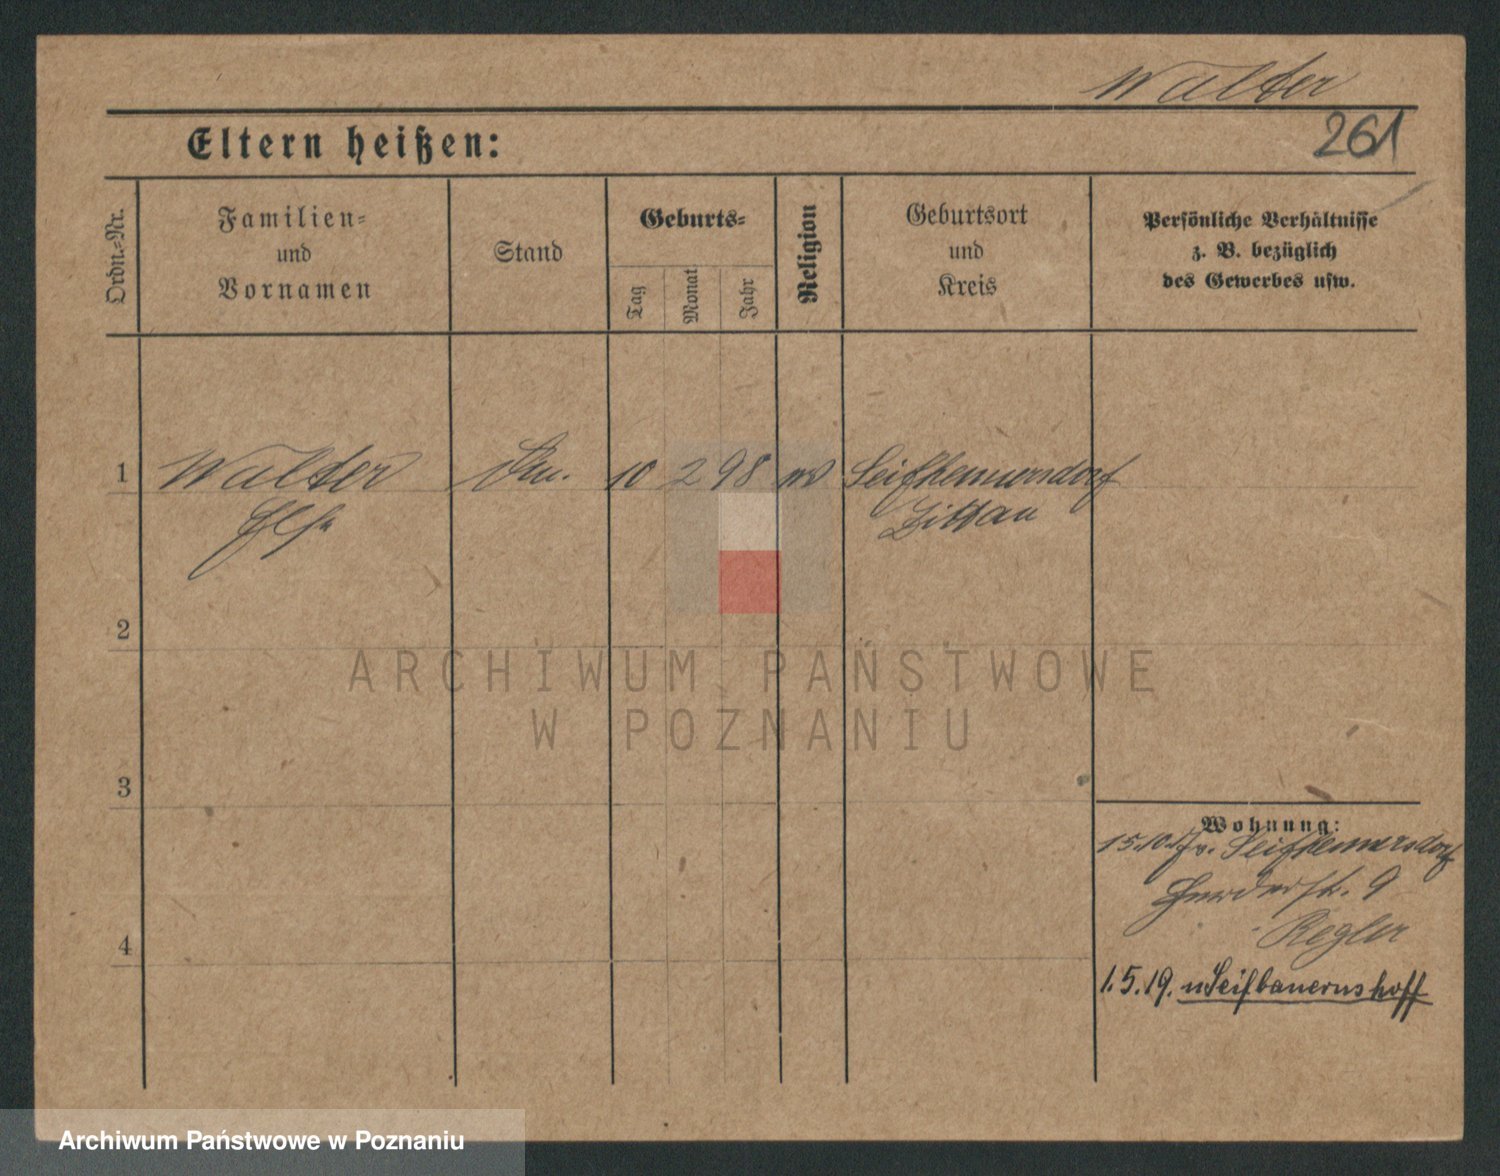 Walter
261
Eltern heißen:
Ordn.-Nr.
Familien-
und
Vornamen
Stand
Geburts-
Tag
Monat
Jahr
Religion
Geburtsort
und
Kreis
Persönliche Verhältnisse
z. B. bezüglich
des Gewerbes usw.
1
Walter 10 2 98 Seifhennersdorf
Elsa Zittau
2
ARCHIWUM PAŃSTWOWE
W POZNANIU
3
Wohnung:
15.10. Seifhennersdorf
9
Regler
4
1.5.19. n Leifbauernshoff
Archiwum Państwowe w Poznaniu